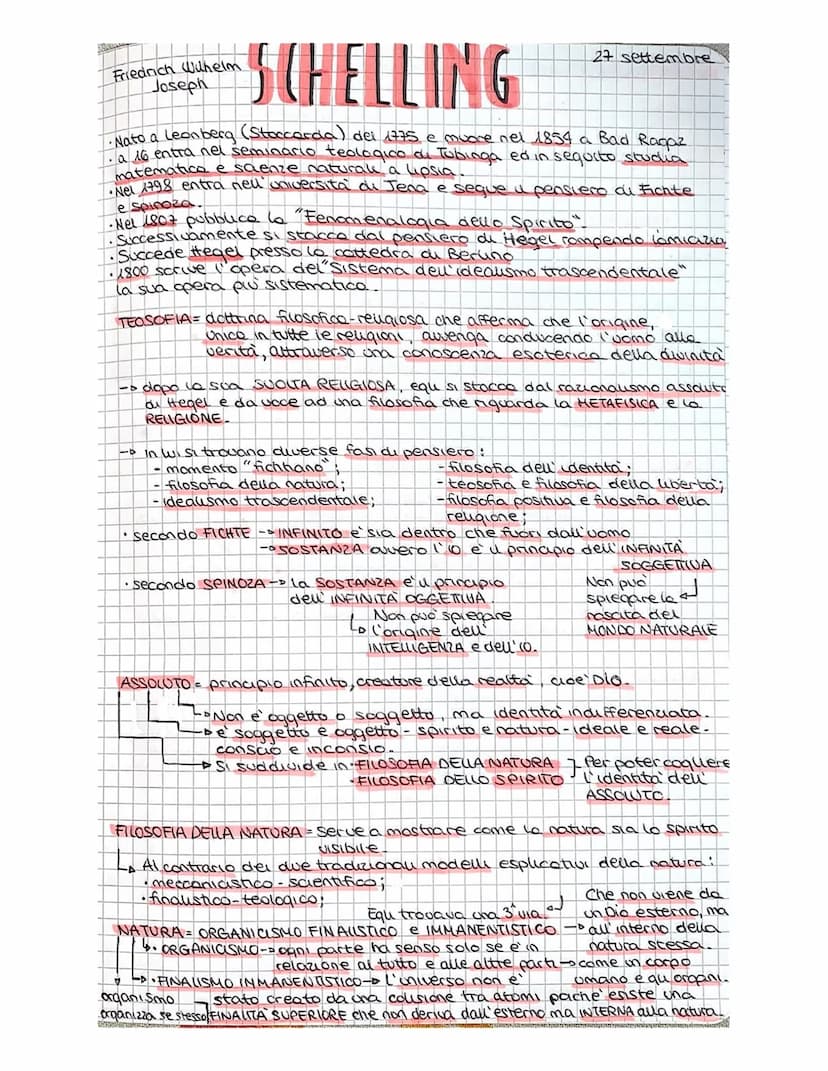 Friedrich Wilhelm Joseph
SCHELLING
27 settembre
· Nato a Leonberg (Stoccarda) del 1775 e muore nel 1854 a Bad Ragaz
· a 16 entra nel seminario teologico di Tubinga ed in seguito studia
matematica e scienze naturali a Lipsia.
· Nel 1798 entra nell'università di Jena e segue il pensiero di Fichte
e Spinoza.
· Nel 1807 pubblica la "Fenomenalogia dello Spirito".
· Successivamente si stacca dal pensiero di Hegel rompendo l'amicizia
· Succede Hegel presso la cattedra di Berlino
· 1800 scrive l'opera del "Sistema dell'idealismo trascendentale"
la sua opera più sistematica.
TEOSOFIA = dottrina filosofico-religiosa che afferma che l'origine,
unica in tutte le religioni, avvenga conducendo l'uomo alla
verità, attraverso una conoscenza esoterica della divinità
-> dopo la sua SVOLTA RELIGIOSA, egli si stacca dal razionalismo assoluto
di Hegel e da voce ad una filosofia che riguarda la METAFISICA e la
RELIGIONE.
-> In lui si trovano diverse fasi di pensiero:
- momento "fichtiano"; - filosofia dell'identità;
- filosofia della natura; - teosofia e filosofia della libertà;
- idealismo trascendentale; - filosofia positiva e filosofia della
religione;
· secondo FICHTE -> INFINITO è sia dentro che fuori dall'uomo
-> SOSTANZA ovvero l'IO è il principio dell'INFINITÀ
SOGGETTIVA
Non può
spiegare la
nascita del
MONDO NATURALE
· secondo SPINOZA -> la SOSTANZA è il principio
dell'INFINITÀ OGGETTIVA.
Non può spiegare
l'origine dell'
INTELLIGENZA e dell'IO.
ASSOLUTO = principio infinito, creatore della realtà, cioè DIO.
-> Non è oggetto o soggetto, ma identità indifferenziata.
-> è soggetto e oggetto - spirito e natura - ideale e reale -
conscio e inconsio.
-> Si suddivide in · FILOSOFIA DELLA NATURA
· FILOSOFIA DELLO SPIRITO
Per poter cogliere
l'identità dell'
ASSOLUTO.
FILOSOFIA DELLA NATURA = serve a mostrare come la natura sia lo spirito
visibile.
Al contrario dei due tradizionali modelli esplicativi della natura:
· meccanicistico - scientifico;
· finalistico-teologico;
Egli trovava una 3ª via
NATURA = ORGANICISMO FINALISTICO e IMMANENTISTICO ->
Che non viene da
un Dio esterno, ma
all'interno della
natura stessa.
· ORGANICISMO -> ogni parte ha senso solo se è in
relazione al tutto e alle altre parti -> come un corpo
umano e gli organi.
· FINALISMO IMMANENTISTICO -> L'universo non è
stato creato da una colusione tra atomi poiché esiste una
FINALITÀ SUPERIORE che non deriva dall'esterno ma INTERNA alla natura.
organismo
organizza se stesso